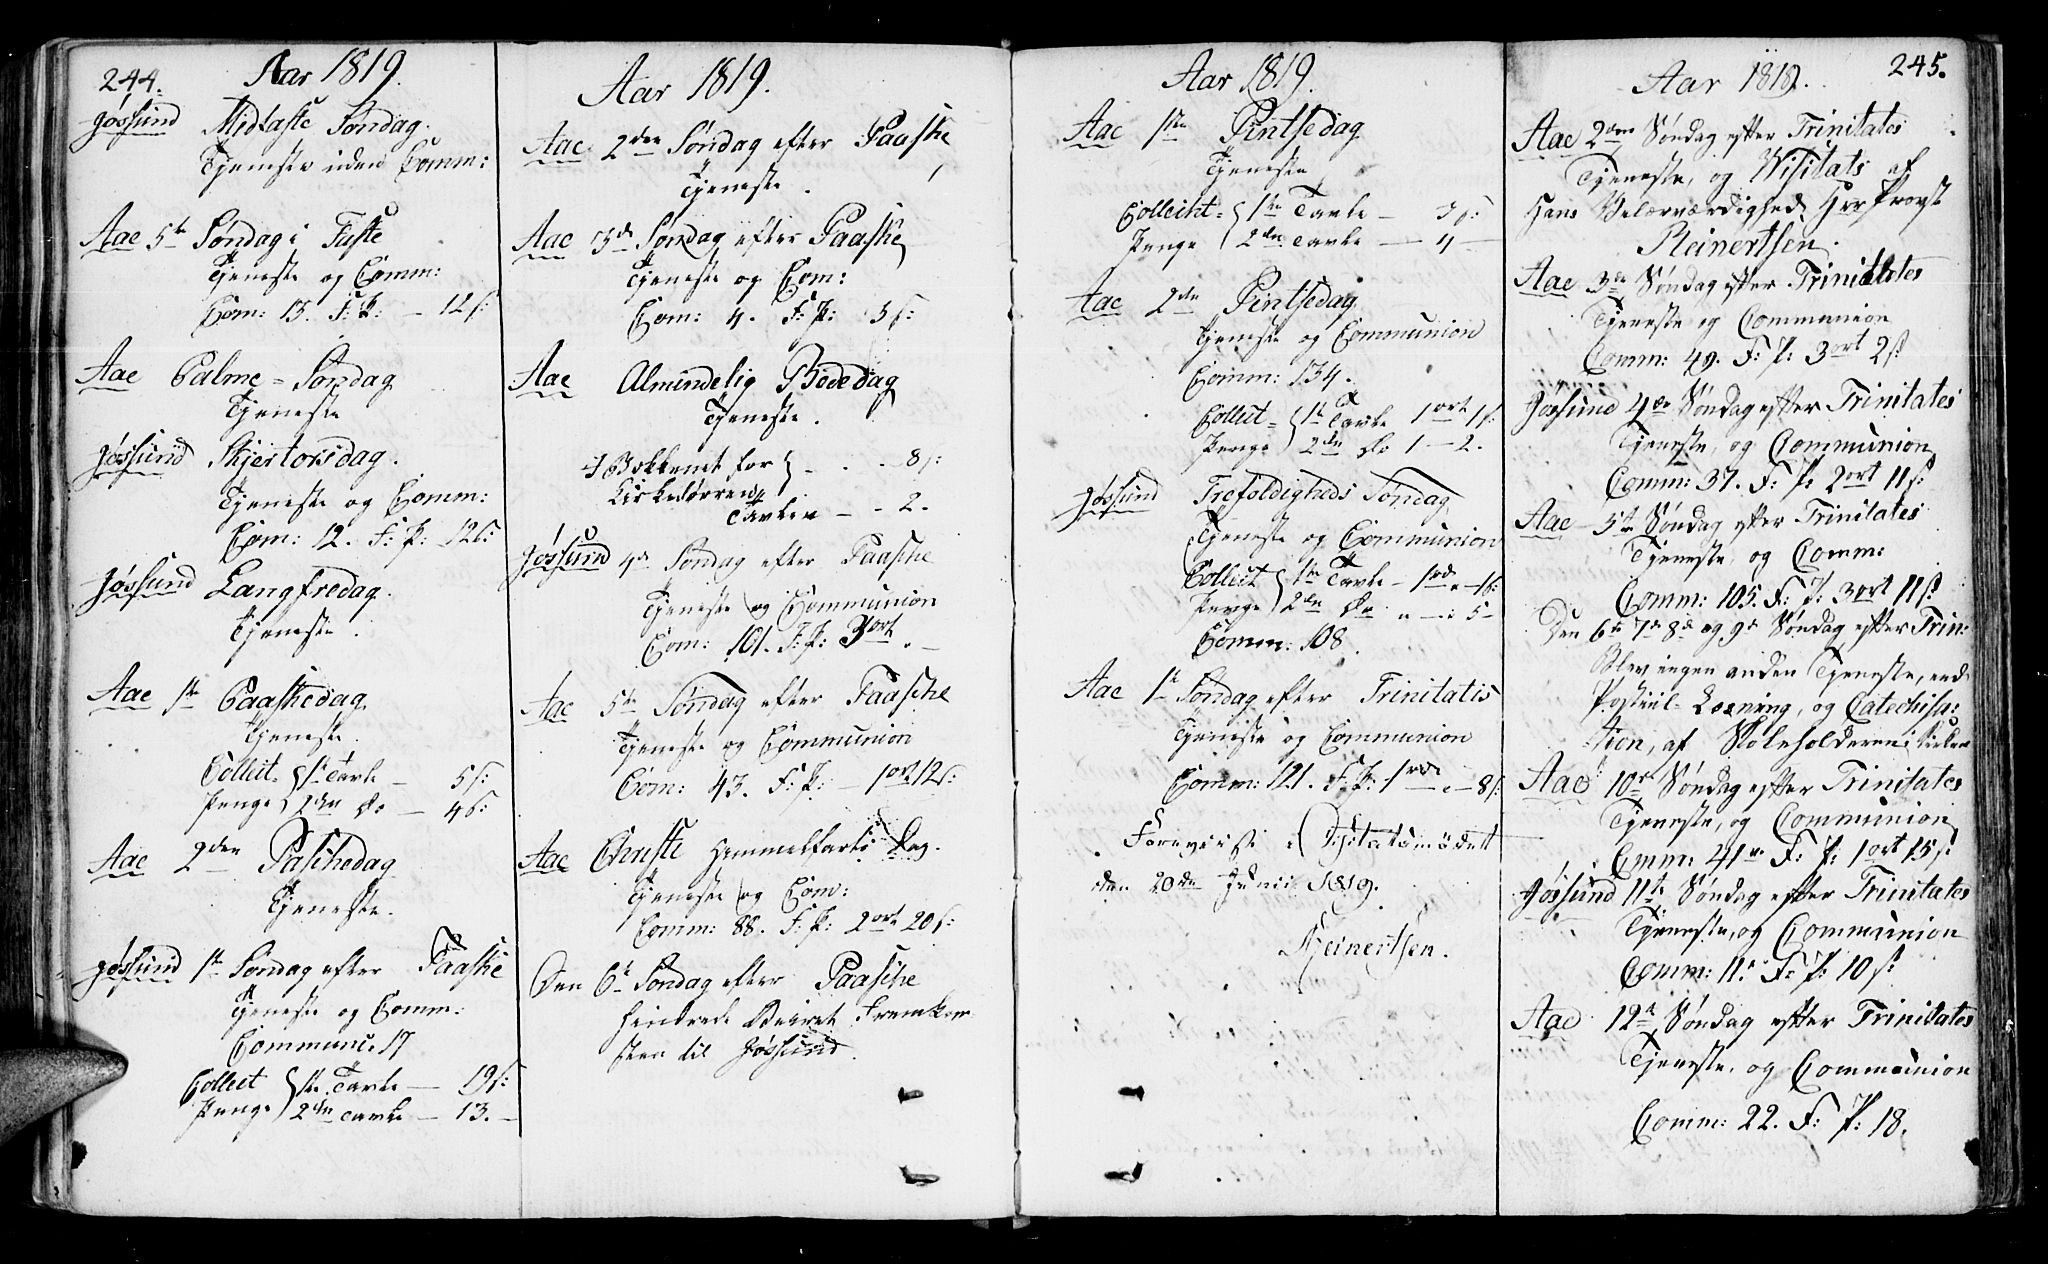 244.
Aar 1819.
Jøssund Midfaste Søndag.
Tjeneste uden Comm:
Aae 5te Søndag i Faste
Tjeneste og Comm:
Com: 13. F: P: — 12 s:
Aae Palme-Søndag
Tjeneste
Jøssund Skjertorsdag.
Tjeneste og Comm:
Com: 12. F: P: 12 s:
Jøssund Langfredag.
Tjeneste.
Aae 1te Paaskedag
Tjeneste.
Collect- 1te Tavle — 5 s:
Penge 2den Do — 4 s:
Aae 2den Paschedag
Tjeneste.
Jøssund 1te Søndag efter Paaske
Tjeneste og Comm:
Communi. 17
Collect 1te Tavle — 19 s:
Penge 2den Tavle — 13. —
Aar 1819.
Aae 2den Søndag efter Paaske
Tjeneste.
Aae 3de Søndag efter Paaske
Tjeneste og Com:
Com: 4. F: P: 3 s:
Aae Almindelig Bededag
Tjeneste.
I Bekkenet for - - - 8 s:
Kirkedørren
Tavlen - - 2.
Jøssund 4de Søndag efter Paasche
Tjeneste og Communion
Com: 101. F: P: 3 ort . —
Aae 5te Søndag efter Paasche
Tjeneste og Communion
Com: 43. F: P: — 1 ort 12 s:
Aae Christi Himmelfarts Dag.
Tjeneste og Com:
Comm: 88. F: P: 2 ort 20 s:
Den 6te Søndag efter Paasche
hindrede Veiret Fremkom
sten til Jøssund.
Aar 1819.
Aae 1te Pintsedag
Tjeneste
Collecht- 1te Tavle — 3 s:
Penge 2den Tavle — 4 —
Aae 2den Pintsedag
Tjeneste og Communion
Comm: 134.
Collect- 1te Tavle 1 ort 1 s:
Penge 2den Do 1 — 2.
Jøssund Trefoldigheds Søndag
Tjeneste og Communion
Collect 1te Tavle — 1 rd " — 1 s:
Penge 2den Do " — : 5 —
Comm: 108.
Aae 1te Søndag efter Trinitatis
Tjeneste og Communion
Comm: 121. F: P: 1 rd — " — 8 s:
Foreviist i Visitatsmødet
den 20de Junii 1819.
Steinertsen.
245.
Aar 1819.
Aae 2den Søndag efter Trinitates
Tjeneste, og Visitats af
Hans Velærværdighed Hrr Provst
Steinertsen.
Aae 3de Søndag efter Trinitates
Tjeneste og Communion
Comm: 49. F: P: 3 ort 2 s:
Jøssund 4de Søndag efter Trinitates
Tjeneste, og Communion
Comm: 37. F: P: 2 ort 11 s:
Aae 5te Søndag efter Trinitates
Tjeneste, og Comm:
Comm: 105. F: P: 3 ort 11 s:
Den 6te 7de 8de og 9de Søndag efter Trin:
Blev ingen anden Tjeneste, end
Postill-Læsning, og Catechisa:
tion, af Skoleholderen i Kirken
Aae 10de Søndag efter Trinitates
Tjeneste, og Communion
Comm: 41. F: P: 1 ort 15 s:
Jøssund 11te Søndag efter Trinitates
Tjeneste, og Communion
Comm: 11. F: P: 10 s:
Aae 12te Søndag efter Trinitates
Tjeneste, og Communion
Comm: 22. F: P: 18.